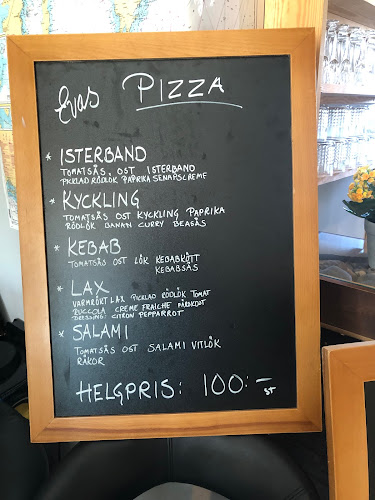 Evas PIZZA
* ISTERBAND
TOMATSÅS, OST ISTERBAND
PICKLAD RÖDLÖK PAPRIKA SENAPSCREME
* KYCKLING
TOMATSÅS OST KYCKLING PAPRIKA
RÖDLÖK BANAN CURRY BEASÅS
* KEBAB
TOMATSÅS OST LÖK KEBABKÖTT
KEBABSÅS
* LAX
VARMRÖKT LAX PICKLAD RÖDLÖK TOMAT
RUCCOLA CREME FRAICHE
DRESSING: CITRON PEPPARROT
* SALAMI
TOMATSÅS OST SALAMI VITLÖK
RÄKOR
HELGPRIS: 100:-
ST